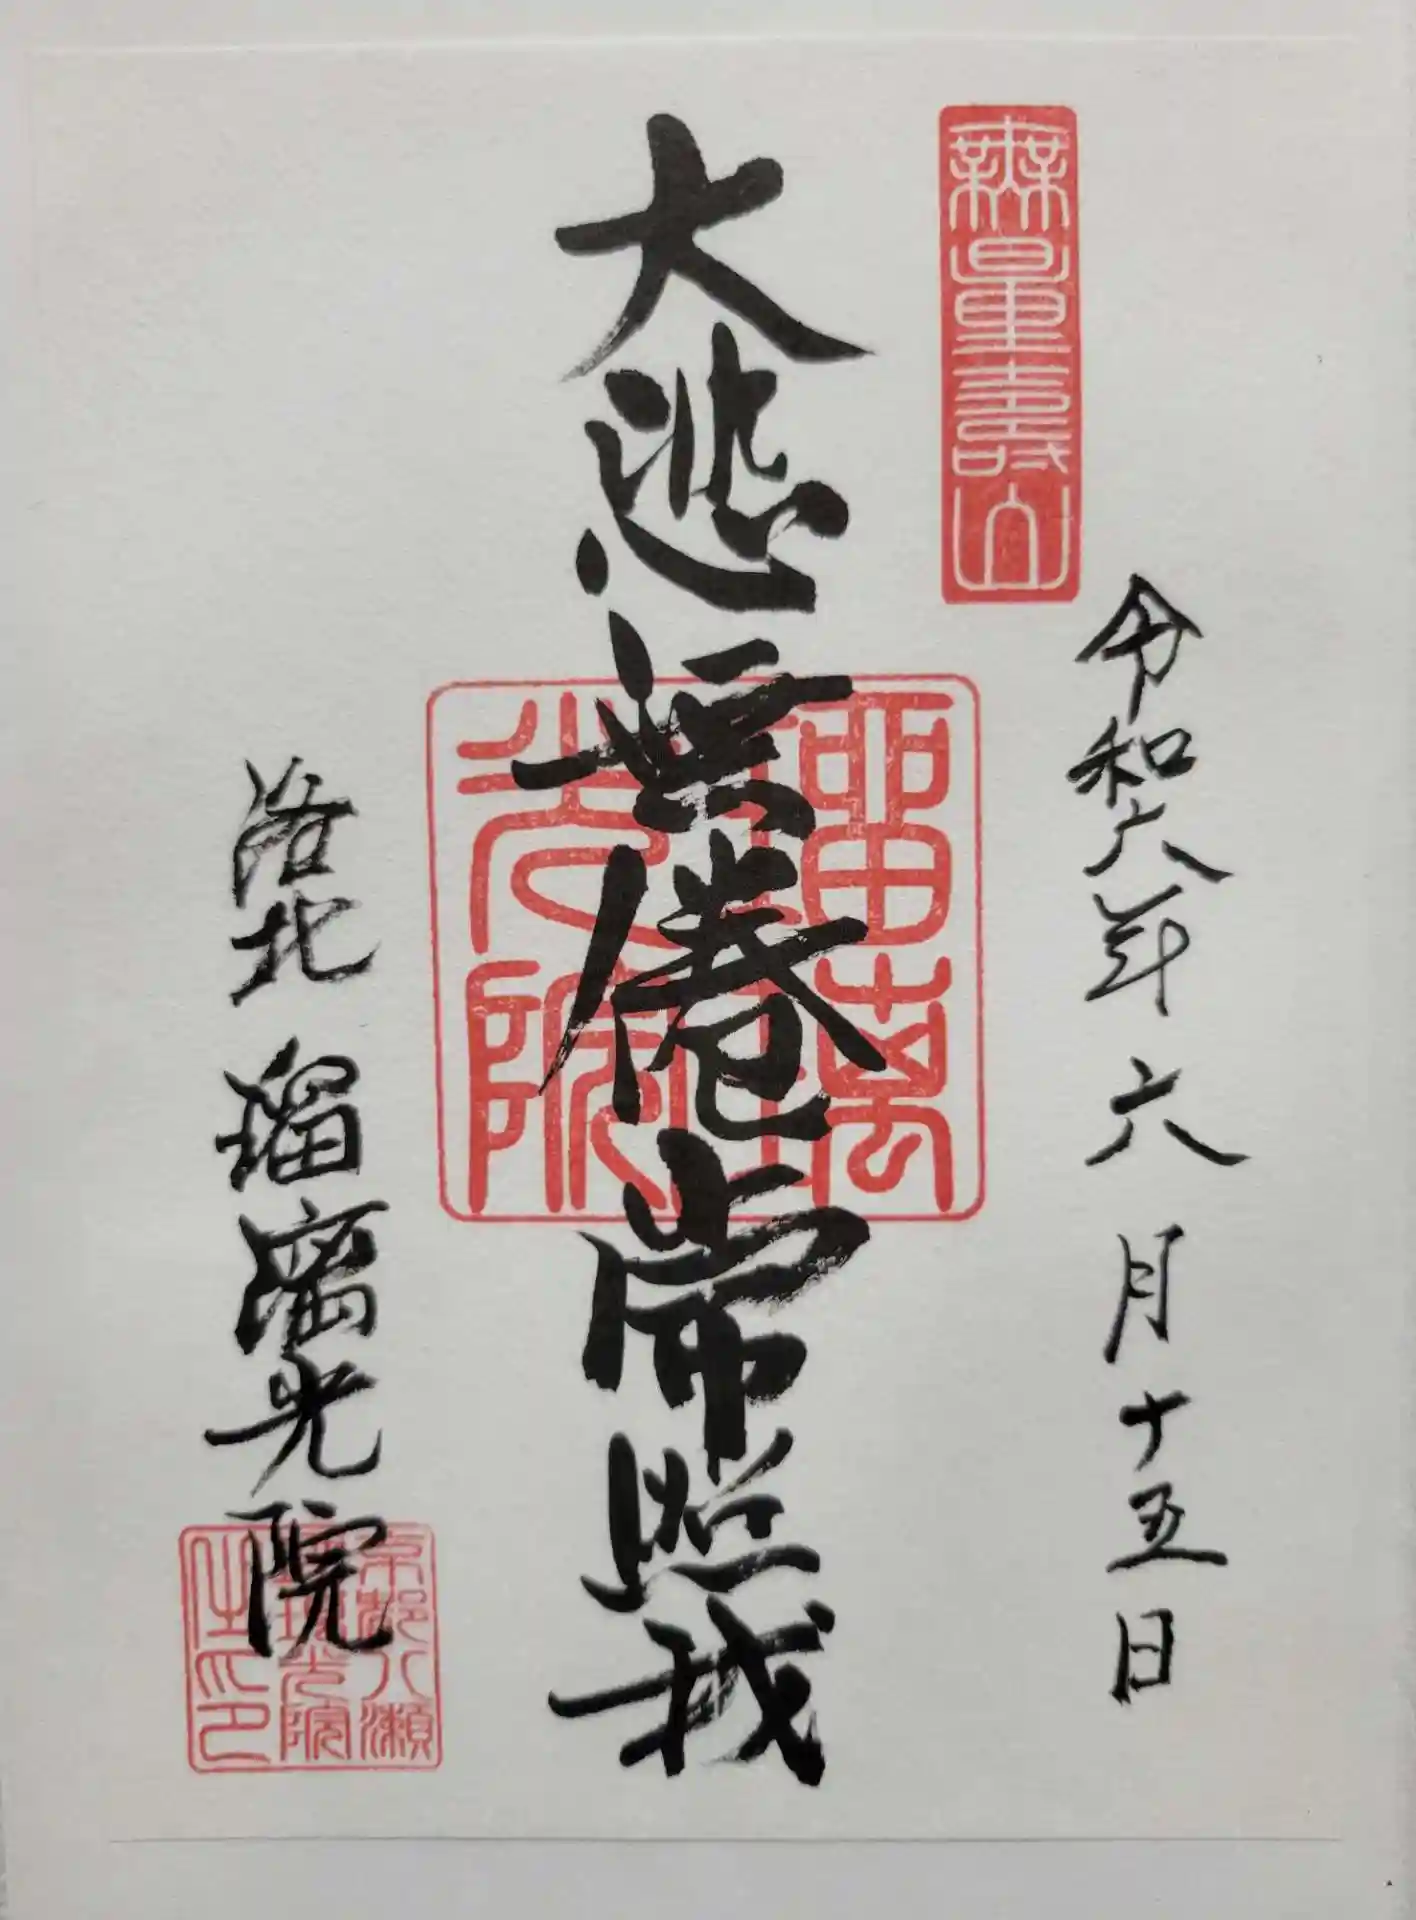 無量壽山
令和六年 六月十五日
大悲無倦常照我
洛北 瑠璃光院
京都八瀬
瑠璃光院
之印